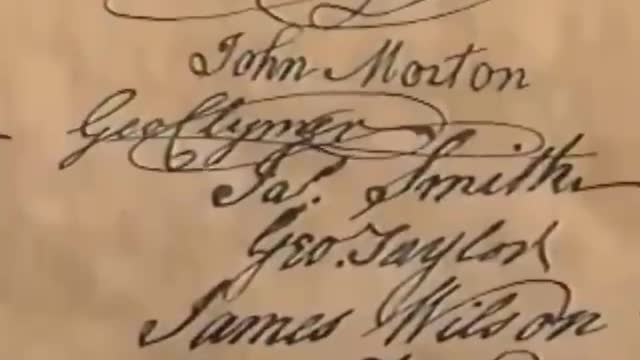 John Morton
Geo Clymer
Jas. Smith
Geo. Taylor
James Wilson